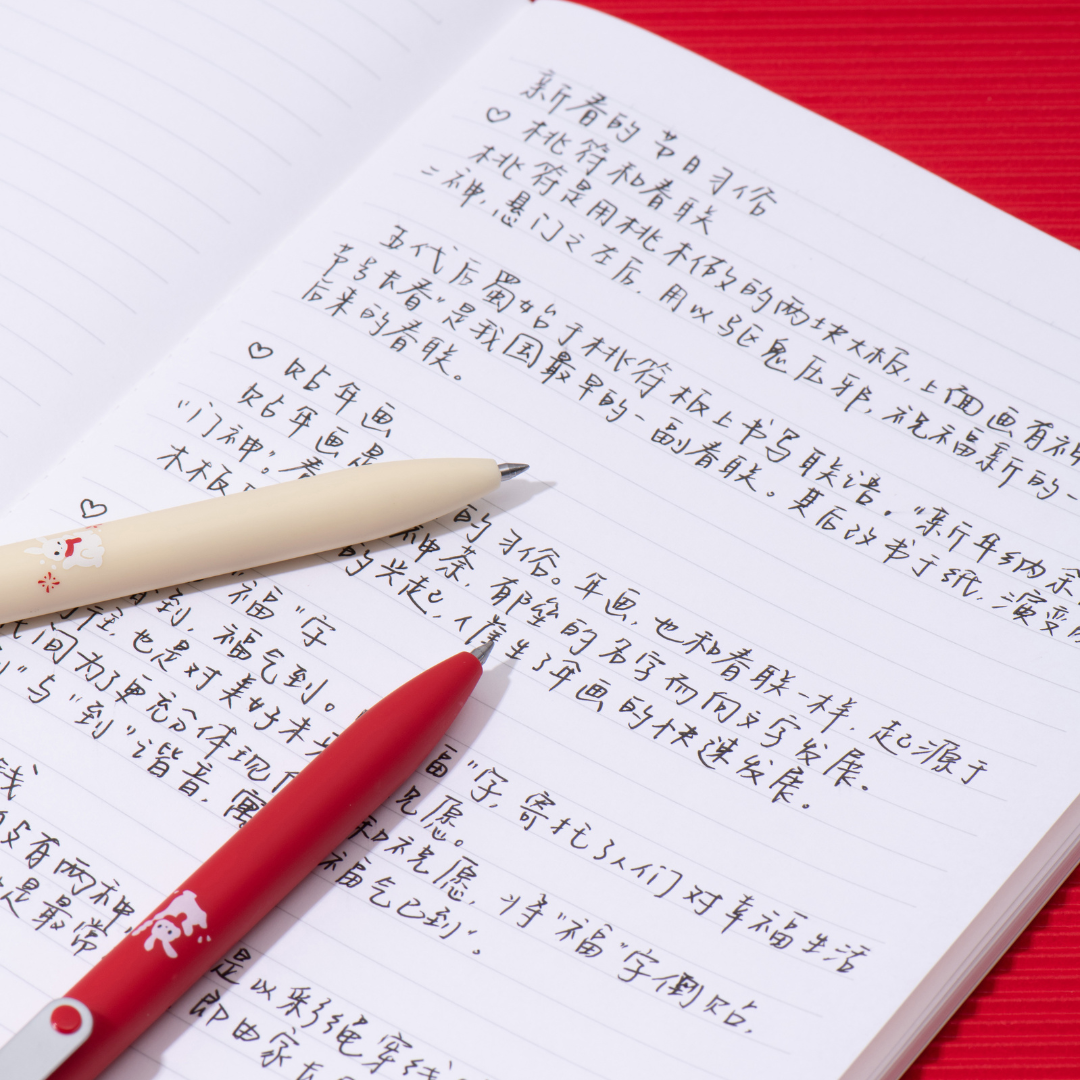 新春的节日习俗
♡ 桃符和春联
桃符是用桃木做的两块大板，上面画有神
二神，悬门之左后，用以驱鬼压邪，祝福新的一
五代后蜀始于桃符板上书写联语。"新年纳余
节号长春"是我国最早的一副春联。其后改书于纸，演变
后来的春联。
♡ 贴年画
贴年画是的习俗。年画，也和春联一样，起源于
"门神"。春神荼，有郁垒的名字而向文字发展。
木板的兴起，催生了年画的快速发展。
♡
"福"字
到，福气到。福"字，寄托了人们对幸福生活
往，也是对美好未来祝愿。
民间为了更充分体现和祝愿，将"福"字倒贴，
到"与"到"谐音，寓福气已到"。
钱
有两种，是以彩绳穿线
是最常即由家